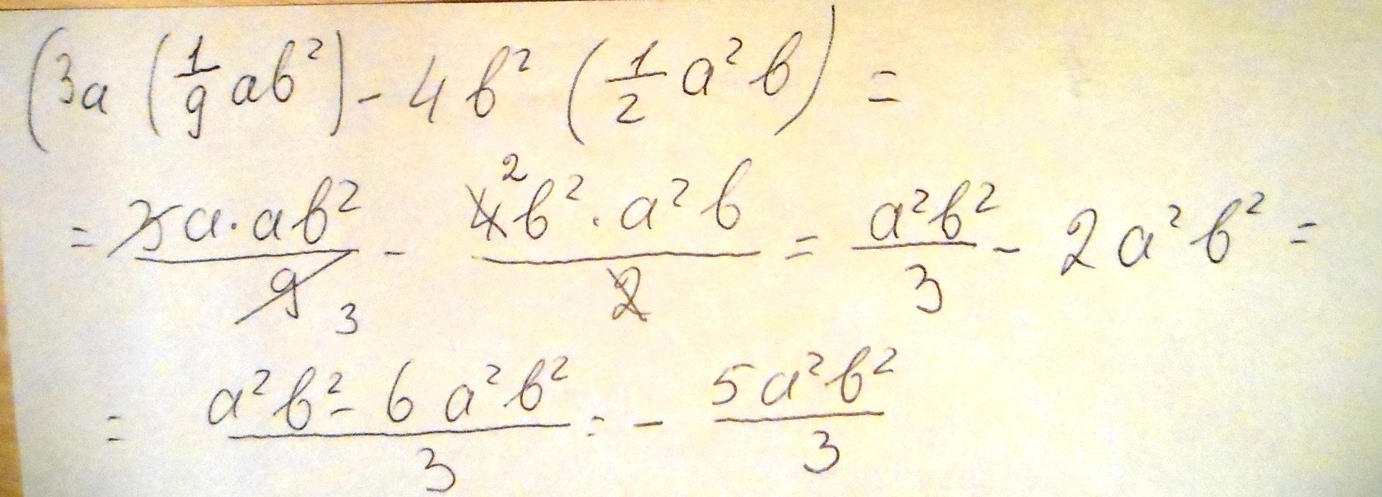 (3a (1/9 ab²) - 4b² (1/2 a²b) =
= 3a·ab²/9 3 - 4 2 b²·a²b/2 = a²b²/3 - 2a²b² =
= a²b² - 6a²b²/3 = - 5a²b²/3